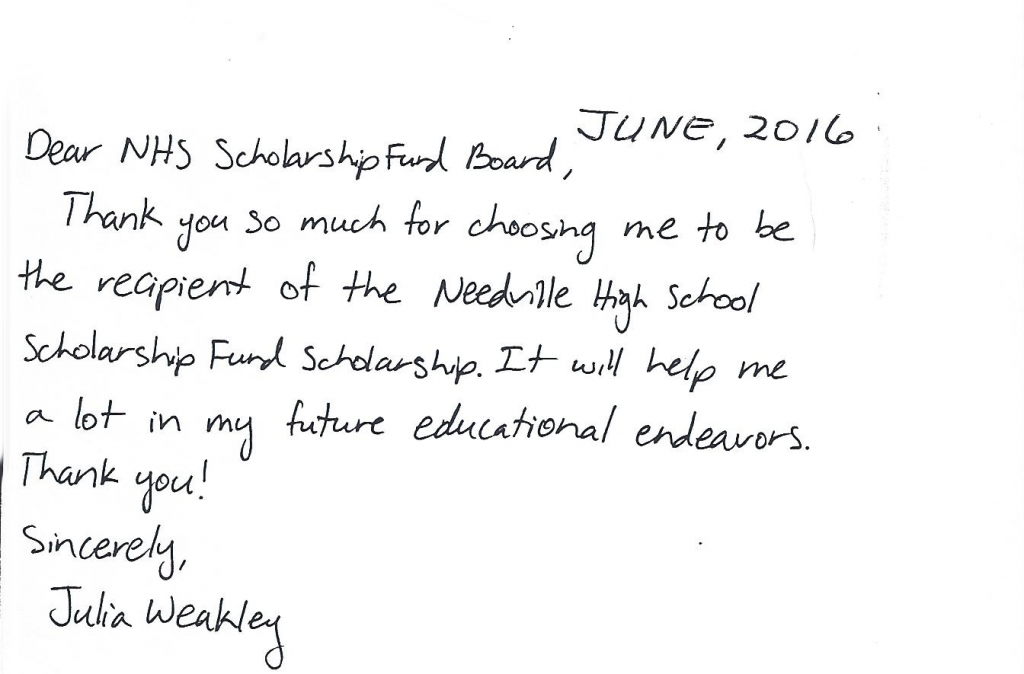 JUNE, 2016
Dear NHS Scholarship Fund Board,
Thank you so much for choosing me to be
the recipient of the Needville High School
Scholarship Fund Scholarship. It will help me
a lot in my future educational endeavors.
Thank you!
Sincerely,
Julia Weakley